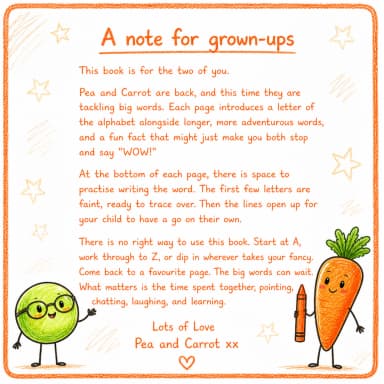 A note for grown-ups
This book is for the two of you.
Pea and Carrot are back, and this time they are
tackling big words. Each page introduces a letter of
the alphabet alongside longer, more adventurous words,
and a fun fact that might just make you both stop
and say "WOW!"
At the bottom of each page, there is space to
practise writing the word. The first few letters are
faint, ready to trace over. Then the lines open up for
your child to have a go on their own.
There is no right way to use this book. Start at A,
work through to Z, or dip in wherever takes your fancy.
Come back to a favourite page. The big words can wait.
What matters is the time spent together, pointing,
chatting, laughing, and learning.
Lots of Love
Pea and Carrot xx